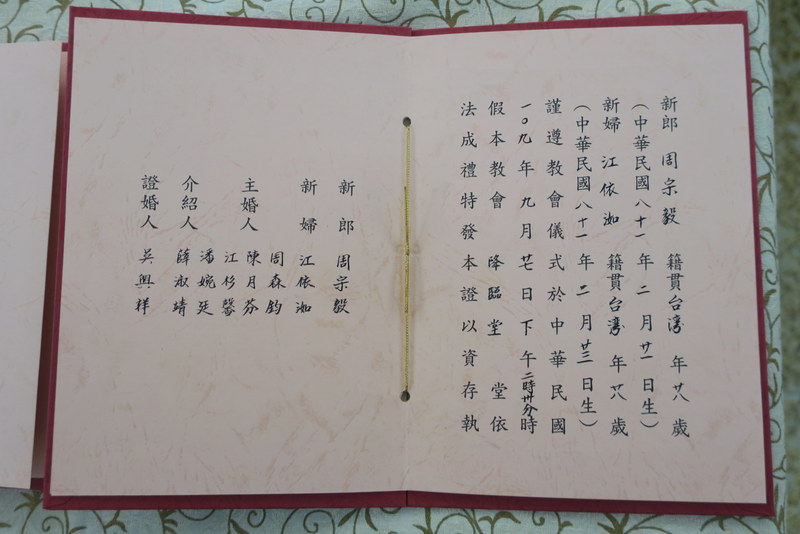 新郎 周宗毅 籍貫台灣 年廿八歲
（中華民國八十一年二月廿一日生）
新婦 江依泇 籍貫台灣 年廿八歲
（中華民國八十一年二月廿三日生）
謹遵教會儀式於中華民國
一〇九年九月廿七日下午二時卅分時
假本教會降臨堂堂依
法成禮特發本證以資存執
新郎 周宗毅
新婦 江依泇
主婚人 周森鈞
陳月芬
江杉馨
介紹人 潘婉廷
薛淑靖
證婚人 吳興祥